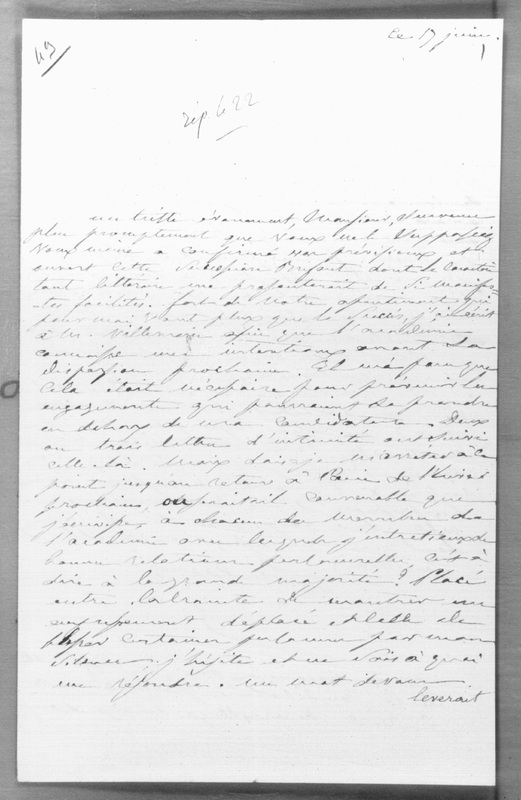 ce 17 juin
49
rép le 22
un triste évènement, Monsieur, survenu
plus promptement que vous ne le supposiez
vous même a confirmé vos prévisions et
ouvert cette succession Brifaut dont le caractère
tant littéraire me présenterait de si manifes
tes facilités. fort de votre assentiment qui
pour moi vaut plus que le succès, j'ai écrit
à Mr. Villemain afin que l'académie
connaisse mes intentions avant sa
dispersion prochaine. Il m'a paru que
cela était nécessaire pour prévenir les
engagements qui pourraient se prendre
en dehors de ma candidature. Deux
ou trois lettres d'intimité ont suivi
celle là. Mais dois-je m'arrêter à ce
point jusqu'au retour à Paris de
prochain, ou serait-il convenable que
j'écrivisse à chacun des membres de
l'académie avec lesquels j'entretiens de
bonnes relations personnelles, c'est à
dire à la grande majorité ? Placé
entre la crainte de montrer un
empressement déplacé et celle de
blesser certaines personnes par mon
silence, j'hésite et ne sais à quoi
me résoudre. un mot de vous
leverait